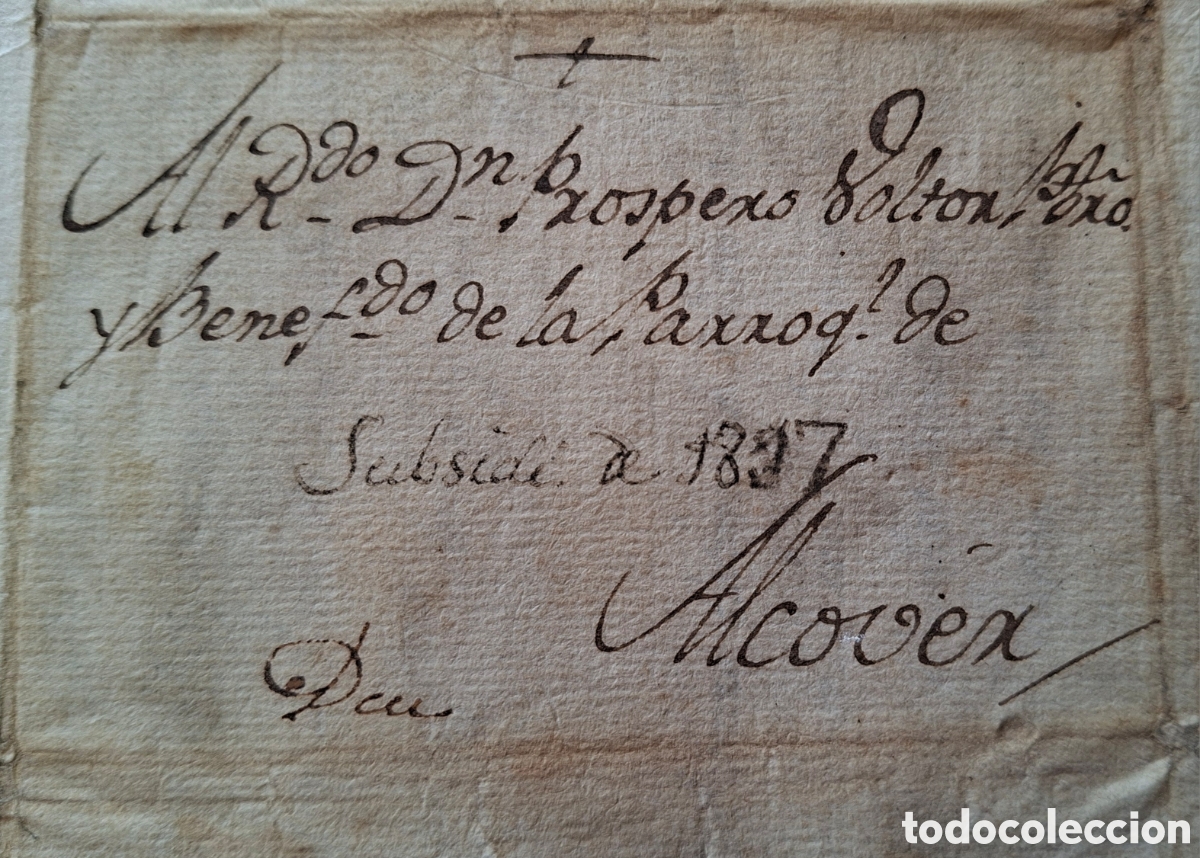 +
Al R.do D.n Prospero Voltor, Pbro.
y Benef.do de la Parroq.l de
Subsidi de 1817
Alcovér
Deu
todocoleccion